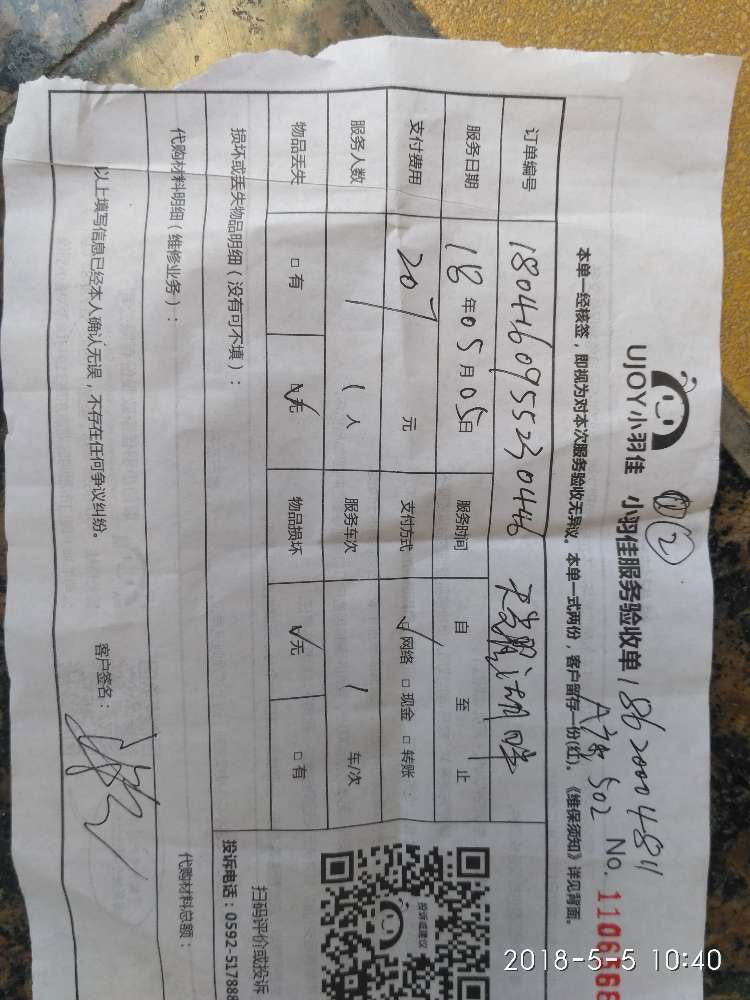 UJOY小羽佳 小羽佳服务验收单
②
No.
本单一经核签，即视为对本次服务验收无异议。本单一式两份，客户留存一份(红)。《维保须知》详见背面。
A7栋 502
订单编号 1804160955230446
服务日期 18年05月05日 服务时间 自 至 止
支付费用 207 元 支付方式 ☑网络 □现金 □转账
服务人数 1人 服务车次 / 车/次
物品丢失 □有 ☑无 物品损坏 ☑无 □有
损坏或丢失物品明细（没有可不填）：
代购材料明细（维修业务）： 代购材料总额：
以上填写信息已经本人确认无误，不存在任何争议纠纷。 客户签名：
投诉或建议
扫码评价或投诉
投诉电话：0592-517888
2018-5-5 10:40